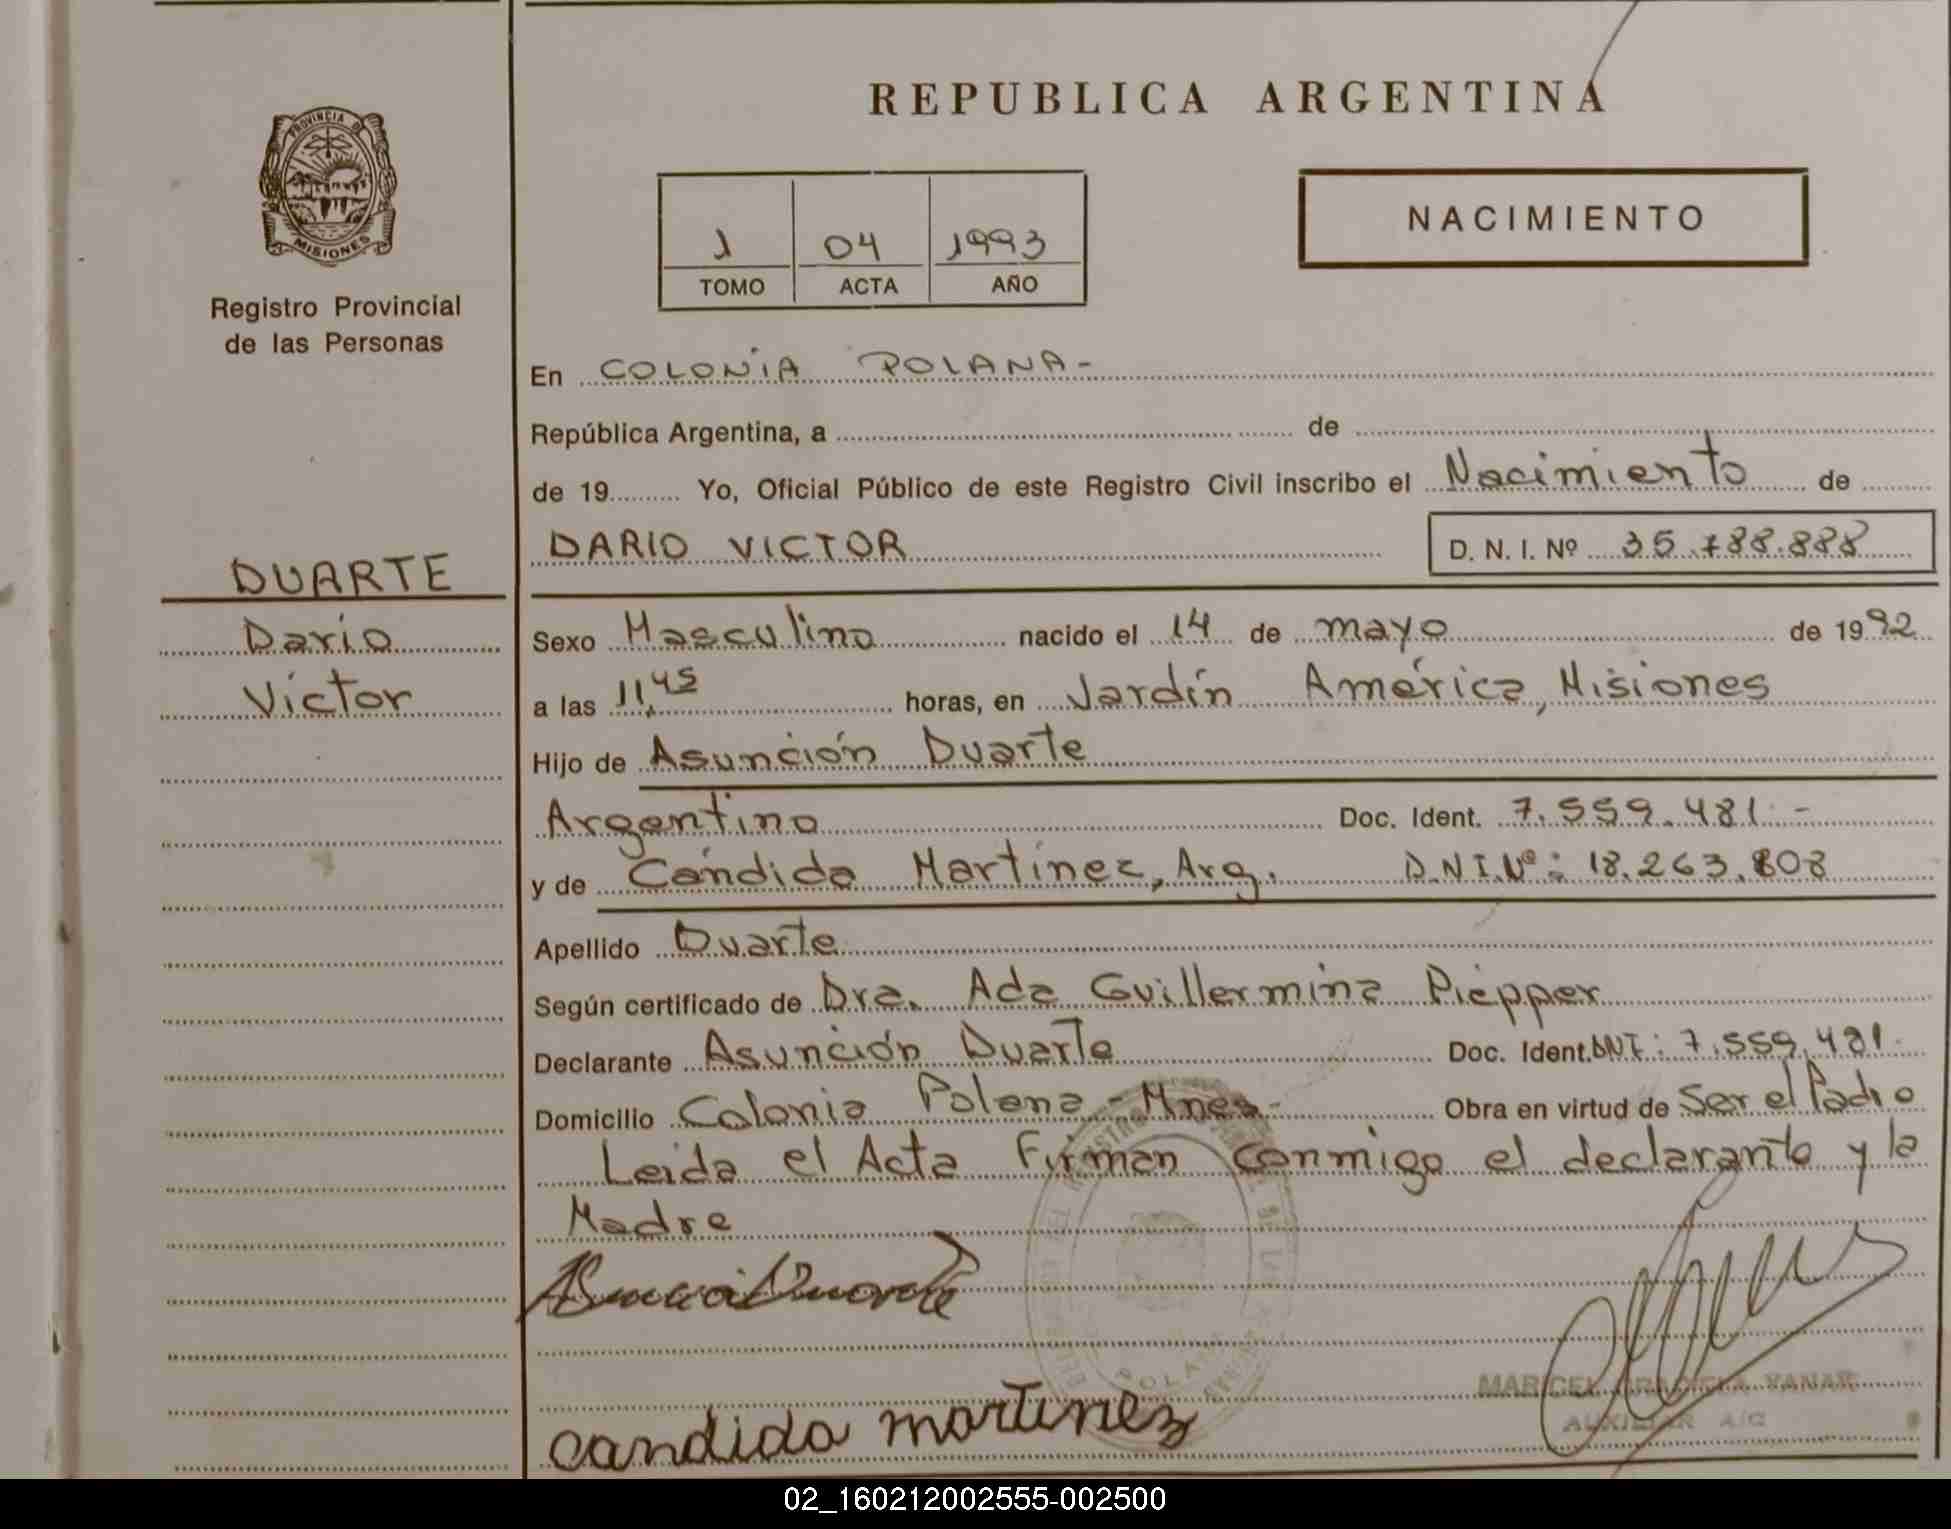 REPUBLICA ARGENTINA
PROVINCIA DE
MISIONES
Registro Provincial
de las Personas
1 04 1993
TOMO ACTA AÑO
NACIMIENTO
En COLONIA POLANA-
República Argentina, a de
de 19 Yo, Oficial Público de este Registro Civil inscribo el Nacimiento de
DARIO VICTOR D. N. I. Nº 35.788.888
DUARTE
Darío
Víctor
Sexo Masculino nacido el 14 de mayo de 1992
a las 11,45 horas, en Jardín América, Misiones
Hijo de Asunción Duarte
Argentino Doc. Ident. 7.559.481.-
y de Cándida Martínez, Arg. D.N.I.Nº: 18.263.808
Apellido Duarte
Según certificado de Dra. Ada Guillermina Piepper
Declarante Asunción Duarte Doc. Ident. DNI: 7.559.481.
Domicilio Colonia Polana - Mnes- Obra en virtud de Ser el Padre
Leida el Acta Firman conmigo el declarante y la
Madre
Asuncion Duarte
candida martinez
POLANA
MARICEL GRACIELA YANAK
AUXILIAR A/C
02_160212002555-002500